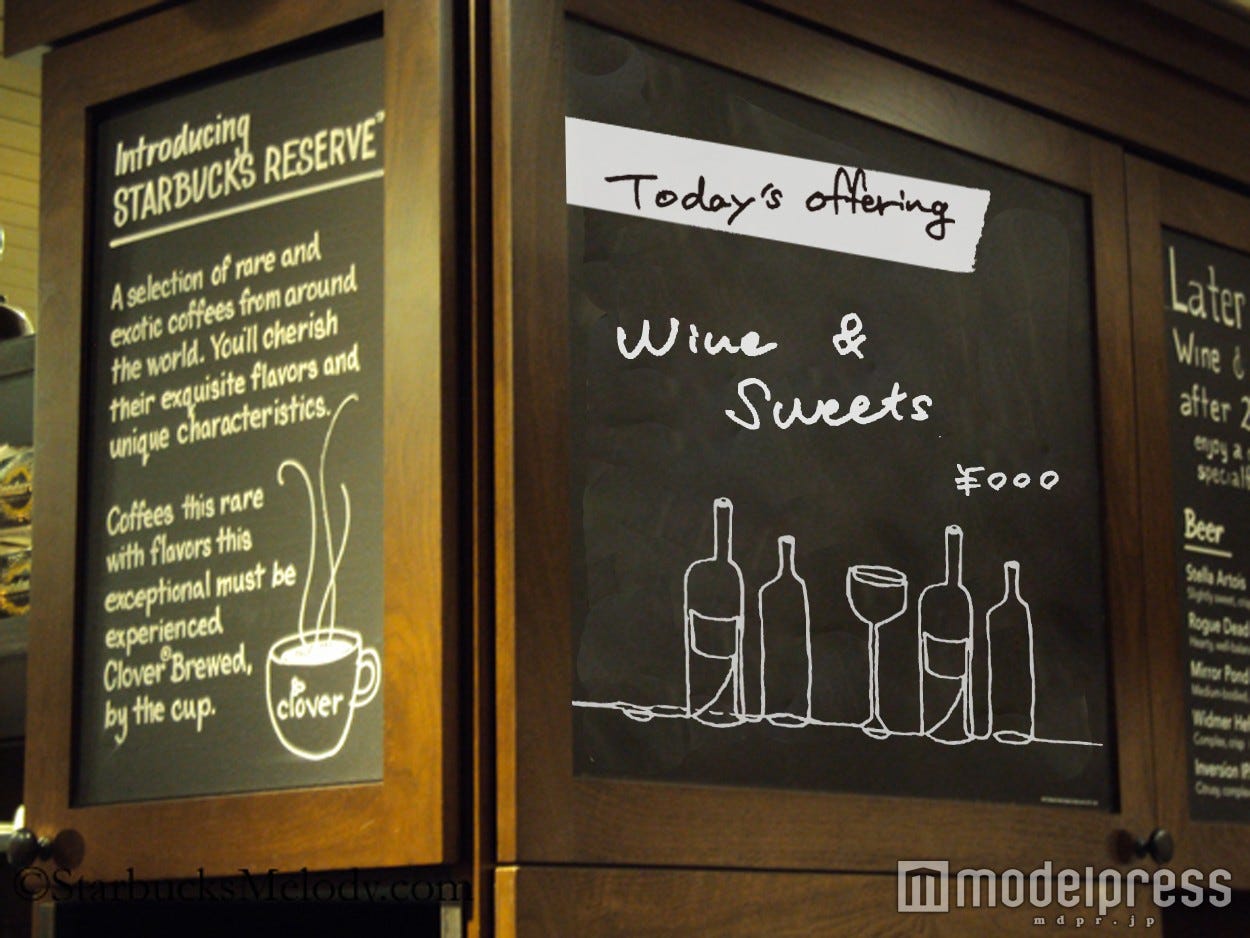 Introducing
STARBUCKS RESERVE™
A selection of rare and
exotic coffees from around
the world. You'll cherish
their exquisite flavors and
unique characteristics.
Coffees this rare
with flavors this
exceptional must be
experienced
Clover® Brewed,
by the cup.
clover
Today's offering
Wine &
Sweets
¥000
Later
Wine &
after 2
enjoy a
Beer
Stella Artois
Rogue Dead
Mirror Pond
Widmer He
Inversion IP
©StarbucksMelody.com
modelpress
mdpr.jp